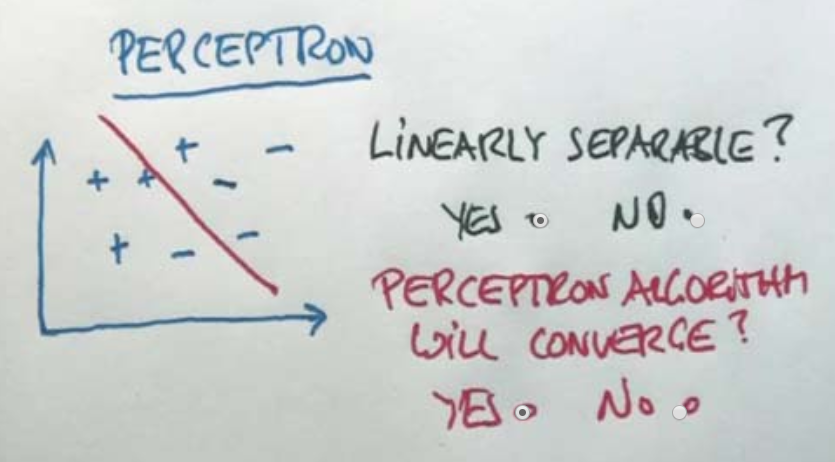 PERCEPTRON
LINEARLY SEPARABLE?
YES NO
PERCEPTRON ALGORITHM
WILL CONVERGE?
YES No